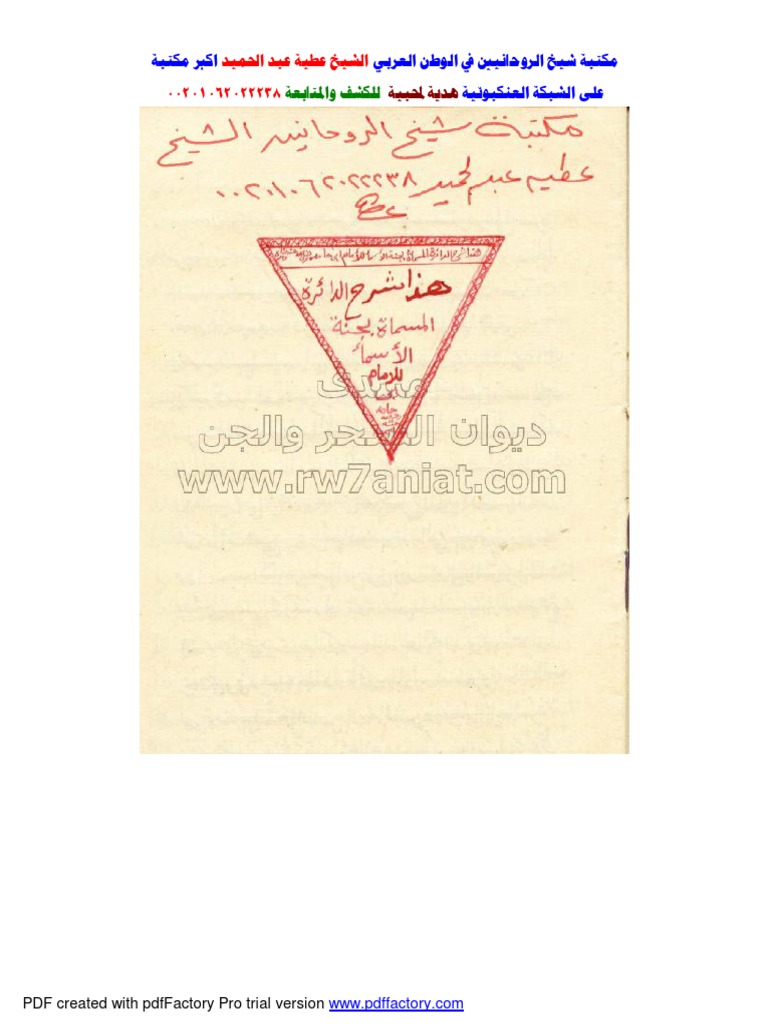 مكتبة شيخ الروحانيين في الوطن العربي الشيخ عطية عبد الحميد اكبر مكتبة
على الشبكة العنكبوتية هدية لمحبية للكشف والمتابعة ٠٠٢٠١٠٦٢٠٢٢٢٣٨
مكتبة شيخ الروحانيين الشيخ
عطيه عبد الحميد ٠٠٢٠١٠٦٢٠٢٢٢٣٨
هذا شرح الدائرة المسماة بجنة الأسماء للإمام
هذا شرح الدائرة
المسماة بجنة
الأسماء
للامام
منتدى
ديوان السحر والجن
www.rw7aniat.com
PDF created with pdfFactory Pro trial version www.pdffactory.com